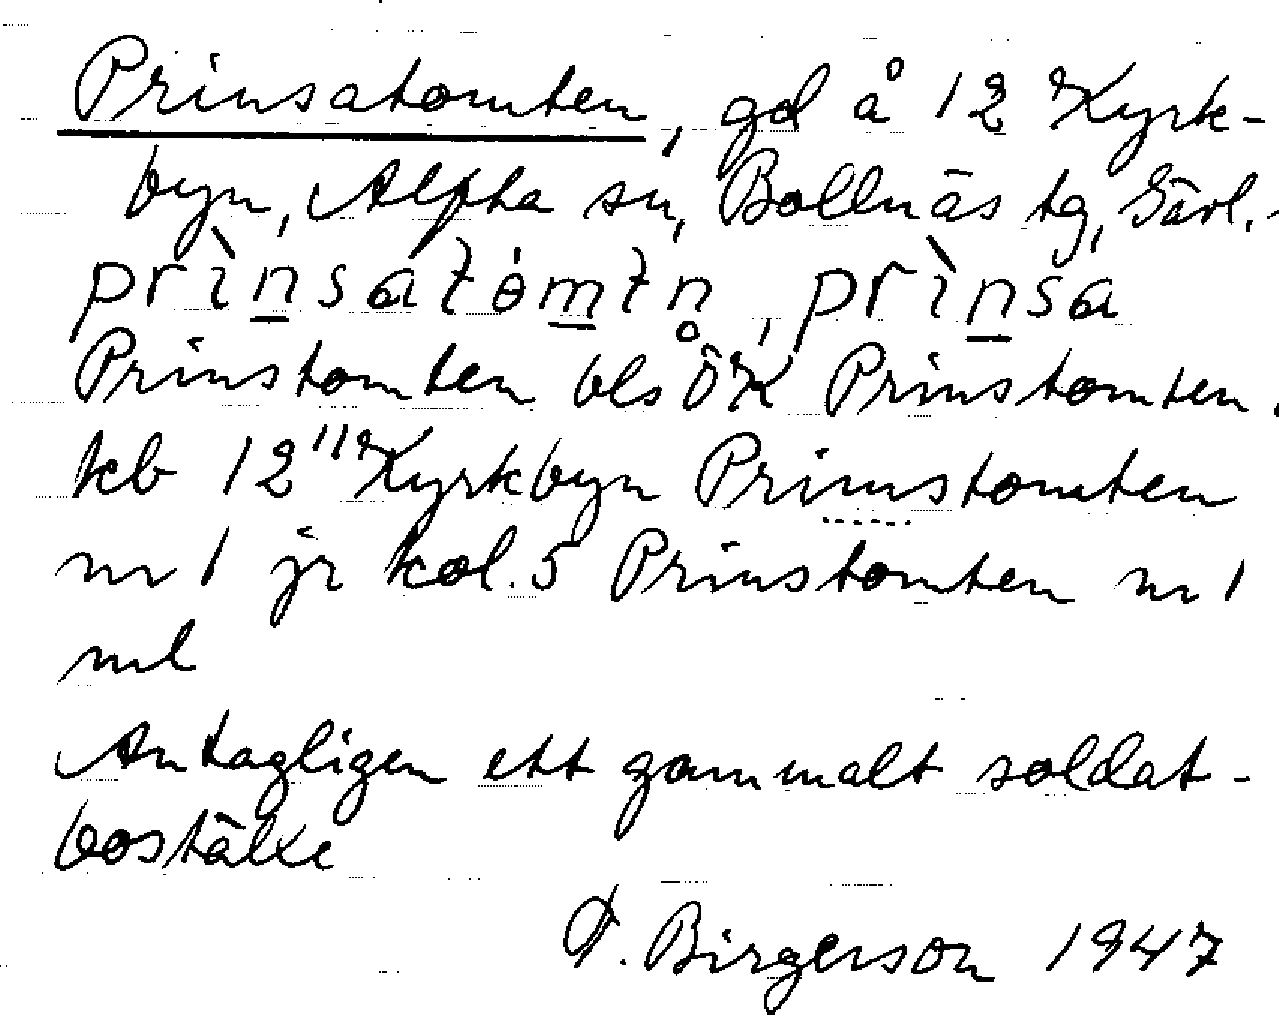 Prinsatomten, gd å 12 Kyrk-
byn, Alfta sn, Bollnäs tg, Gävl.
prìnsatomtn, prìnsa
Prinstomten bls ÖK Prinstomten
kb 12 Kyrkbyn Prinstomten
nr 1 jr kol. 5 Prinstomten nr 1
ml
Antagligen ett gammalt soldat-
boställe
Birgerson 1947